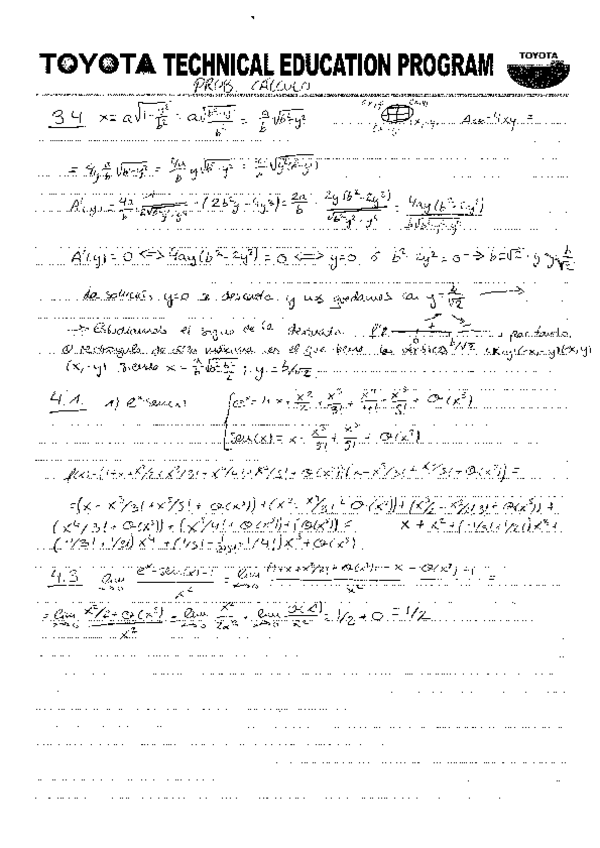 TOYOTA TECHNICAL EDUCATION PROGRAM TOYOTA
PROB. CALCULO
3.4 x = a√(1 - y²/b²) = a√(b²-y²)/b² = a/b √(b²-y²) A=4xy =
= 4y a/b √(b²-y²) = 4a/b y √(b²-y²) = 4a/b √(y²(b²-y²))
A'(y) = 4a/b · (2b²y - 4y³) = 2a/b · 2y(b²-2y²)/√(b²y²-y⁴) = 4ay(b²-2y²)/b√(b²y²-y⁴)
A'(y) = 0 <=> 4ay(b²-2y²) = 0 <=> y=0 ó b²-2y²=0 -> b=√2·y y=b/√2
La solución y=0 se descarta y nos quedamos con y=b/√2
-> Estudiamos el signo de la derivada 0 b/√2 , por tanto,
el rectángulo de área máxima es el que tiene los vértices (x,y)(-x,-y)(-x,y)
(x,-y) siendo x = ; y = b/√2
4.1. 1) eˣ sen(x) eˣ = 1+x+x²/2+x³/3!+x⁴/4!+x⁵/5!+O(x⁵)
sen(x) = x-x³/3!+x⁵/5!+O(x⁵)
f(x)=(1+x+x²/2+x³/3!+x⁴/4!+x⁵/5!+O(x⁵))(x-x³/3!+x⁵/5!+O(x⁵)) =
=(x-x³/3!+x⁵/5!+O(x⁵))+(x²-x⁴/3!+O(x⁵))+(x³/2-x⁵/2·3!+O(x⁵))+
(x⁴/3!+O(x⁵))+(x⁵/4!+O(x⁵))+(O(x⁵)) = x+x²+(-1/3!+1/2)x³+
(-1/3!+1/3!)x⁴+(1/5!-1/2·3!+1/4!)x⁵+O(x⁵)
4.3 lim x->0 eˣ-sen(x)-1 / x² = lim x->0 1+x+x²/2+O(x²)-x-O(x²)-1 / x² =
= lim x->0 x²/2+O(x²) / x² = lim x->0 x²/2x² + lim x->0 O(x²)/x² = 1/2+0 = 1/2